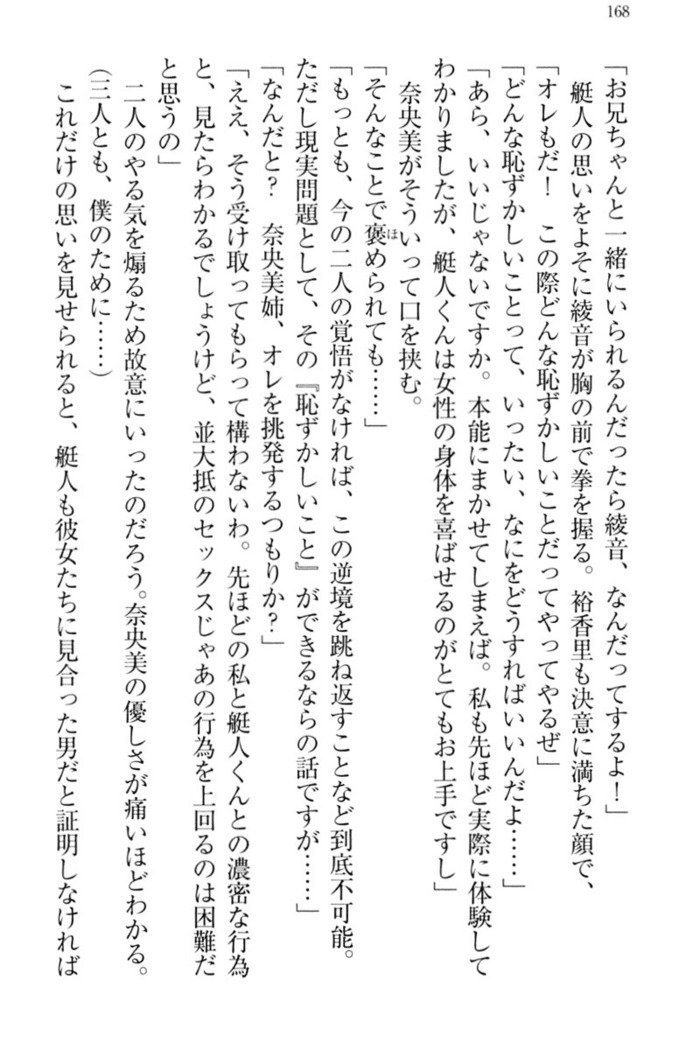 168
「お兄ちゃんと一緒にいられるんだったら綾音、なんだってするよ！」
艇人の思いをよそに綾音が胸の前で拳を握る。裕香里も決意に満ちた顔で、
「オレもだ！　この際どんな恥ずかしいことだってやってやるぜ」
「どんな恥ずかしいことって、いったい、なにをどうすればいいんだよ……」
「あら、いいじゃないですか。本能にまかせてしまえば。私も先ほど実際に体験して
わかりましたが、艇人くんは女性の身体を喜ばせるのがとてもお上手ですし」
奈央美がそういって口を挟む。
「そんなことで褒ほめられても……」
「もっとも、今の二人の覚悟がなければ、この逆境を跳ね返すことなど到底不可能。
ただし現実問題として、その『恥ずかしいこと』ができるならの話ですが……」
「なんだと？　奈央美姉、オレを挑発するつもりか？」
「ええ、そう受け取ってもらって構わないわ。先ほどの私と艇人くんとの濃密な行為
と、見たらわかるでしょうけど、並大抵のセックスじゃあの行為を上回るのは困難だ
と思うの」
二人のやる気を煽るため故意にいったのだろう。奈央美の優しさが痛いほどわかる。
（三人とも、僕のために……）
これだけの思いを見せられると、艇人も彼女たちに見合った男だと証明しなければ